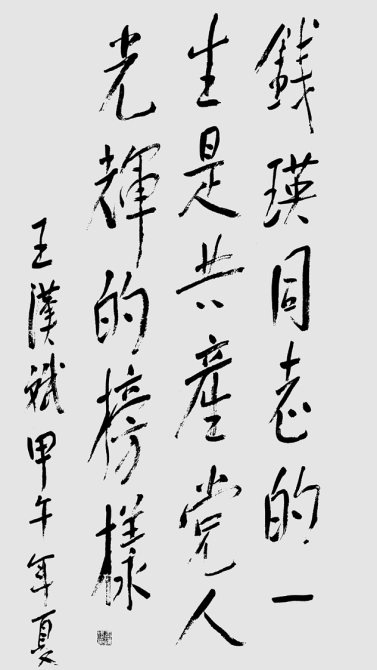 錢瑛同志的一
生是共產党人
光輝的榜樣
王漢斌甲午年夏